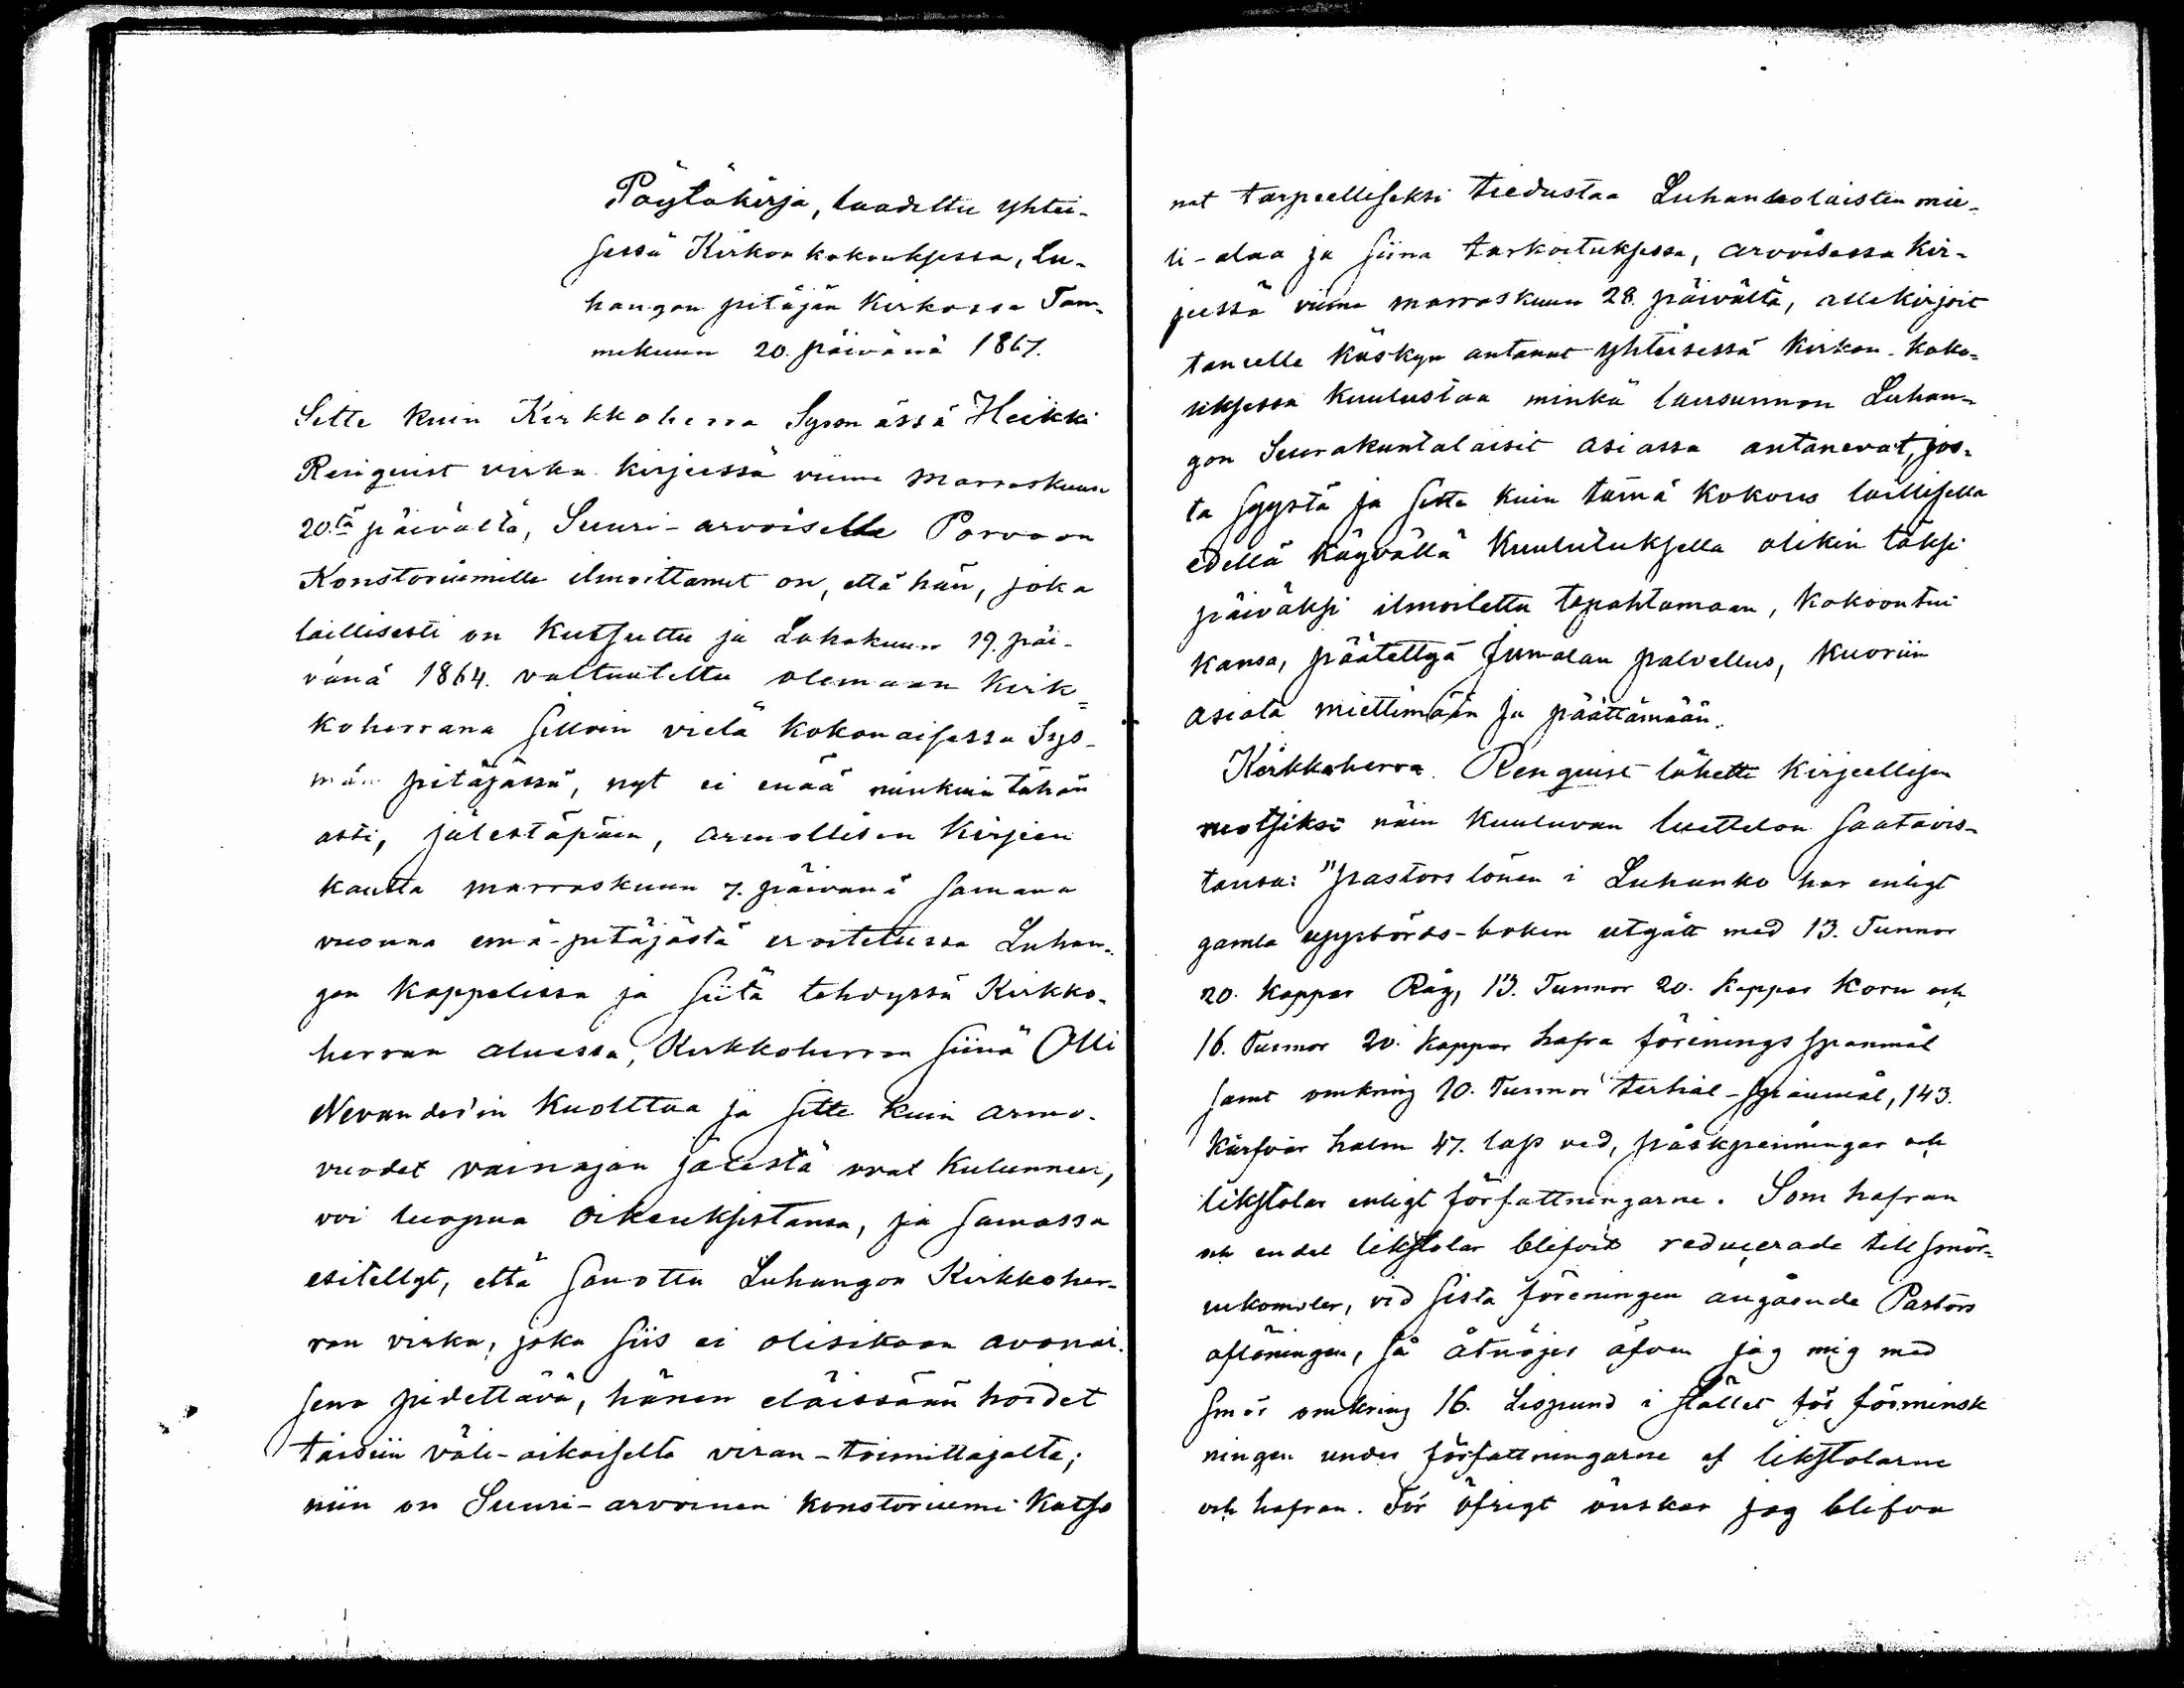 Pöytäkirja, laadittu yhtei-
sessä Kirkon kokouksessa, Lu-
hangan pitäjän Kirkossa Tam-
mikuun 20. päivänä 1867.
Sitte kuin Kirkkoherra Sysmässä Heikki
Renquist virka kirjeessä viime marraskuun
20.tä päivältä, Suuri-arvoiselle Porvoon
Konstoriumille ilmoittanut on, että hän, joka
laillisesti on kutsuttu ja Lokakuun 19. päi-
vänä 1864. valtuutettu olemaan Kirk-
koherrana silloin vielä kokonaisessa Sys-
män pitäjässä, nyt ei enää niinkuin tähän
asti, jälestäpäin, armollisen Kirjeen
kautta marraskuun 7. päivänä samana
vuonna emä-pitäjästä eroitetussa Luhan-
gon kappelissa ja siitä tehdyssä Kirkko-
herran alueessa, Kirkkoherran siinä Olli
Nevander'in kuoltua ja sitte kuin armo-
vuodet vainajan jälestä ovat kuluneet,
voi luopua oikeuksistansa, ja samassa
esitellyt, että sanottu Luhangon Kirkkoher-
ran virka, joka siis ei olisikaan avonai-
sena pidettävä, hänen eläissänsä hoidet
täisiin väli-aikaiselta viran-toimittajalta;
niin on Suuri-arvoinen konstoriumi katso
nut tarpeelliseksi tiedustaa Luhankolaisten mie-
li-alaa ja siinä tarkoituksessa, arvoisessa kir-
jeessä viime marraskuun 28. päivältä, allekirjoit
taneelle käskyn antanut yhteisessä kirkon-koko-
uksessa kuulustaa minkä lausunnon Luhan-
gon Seurakuntalaiset asiassa antanevat, jos-
ta syystä ja sitte kuin tämä kokous laillisella
edellä käyvällä kuulutuksella olikin täksi
päiväksi ilmoitettu tapahtamaan, kokoontui
kansa, päätettyä Jumalan palvellus, kuoriin
asiata miettimään ja päättämään.
Kirkkoherra Renquist lähetti kirjeellisen
ruotsiksi näin kuuluvan luettelon saatavis-
tansa: "Pastors lönen i Luhanko har enligt
gamla uppbörds-boken utgått med 13. Tunnor
20. Kappar Råg, 13. Tunnor 20. Kappar Korn och
16. Tunnor 20. Kappar hafra förenings spanmål
samt omkring 10. Tunnor tertial-spanmål, 143.
Kärfvar halm 47. lass ved, påskpenningar och
likstolar enligt författningarne. Som hafran
och en del likstolar blifvit reducerade till smör-
enkomster, vid sista föreningen angående Pastors
aflöningen, så åtnöjer äfven jag mig med
smör omkring 16. Lispund i stället för förminsk
ningen under författningarne af likstolarne
och hafran. För öfrigt önskar jag blifva